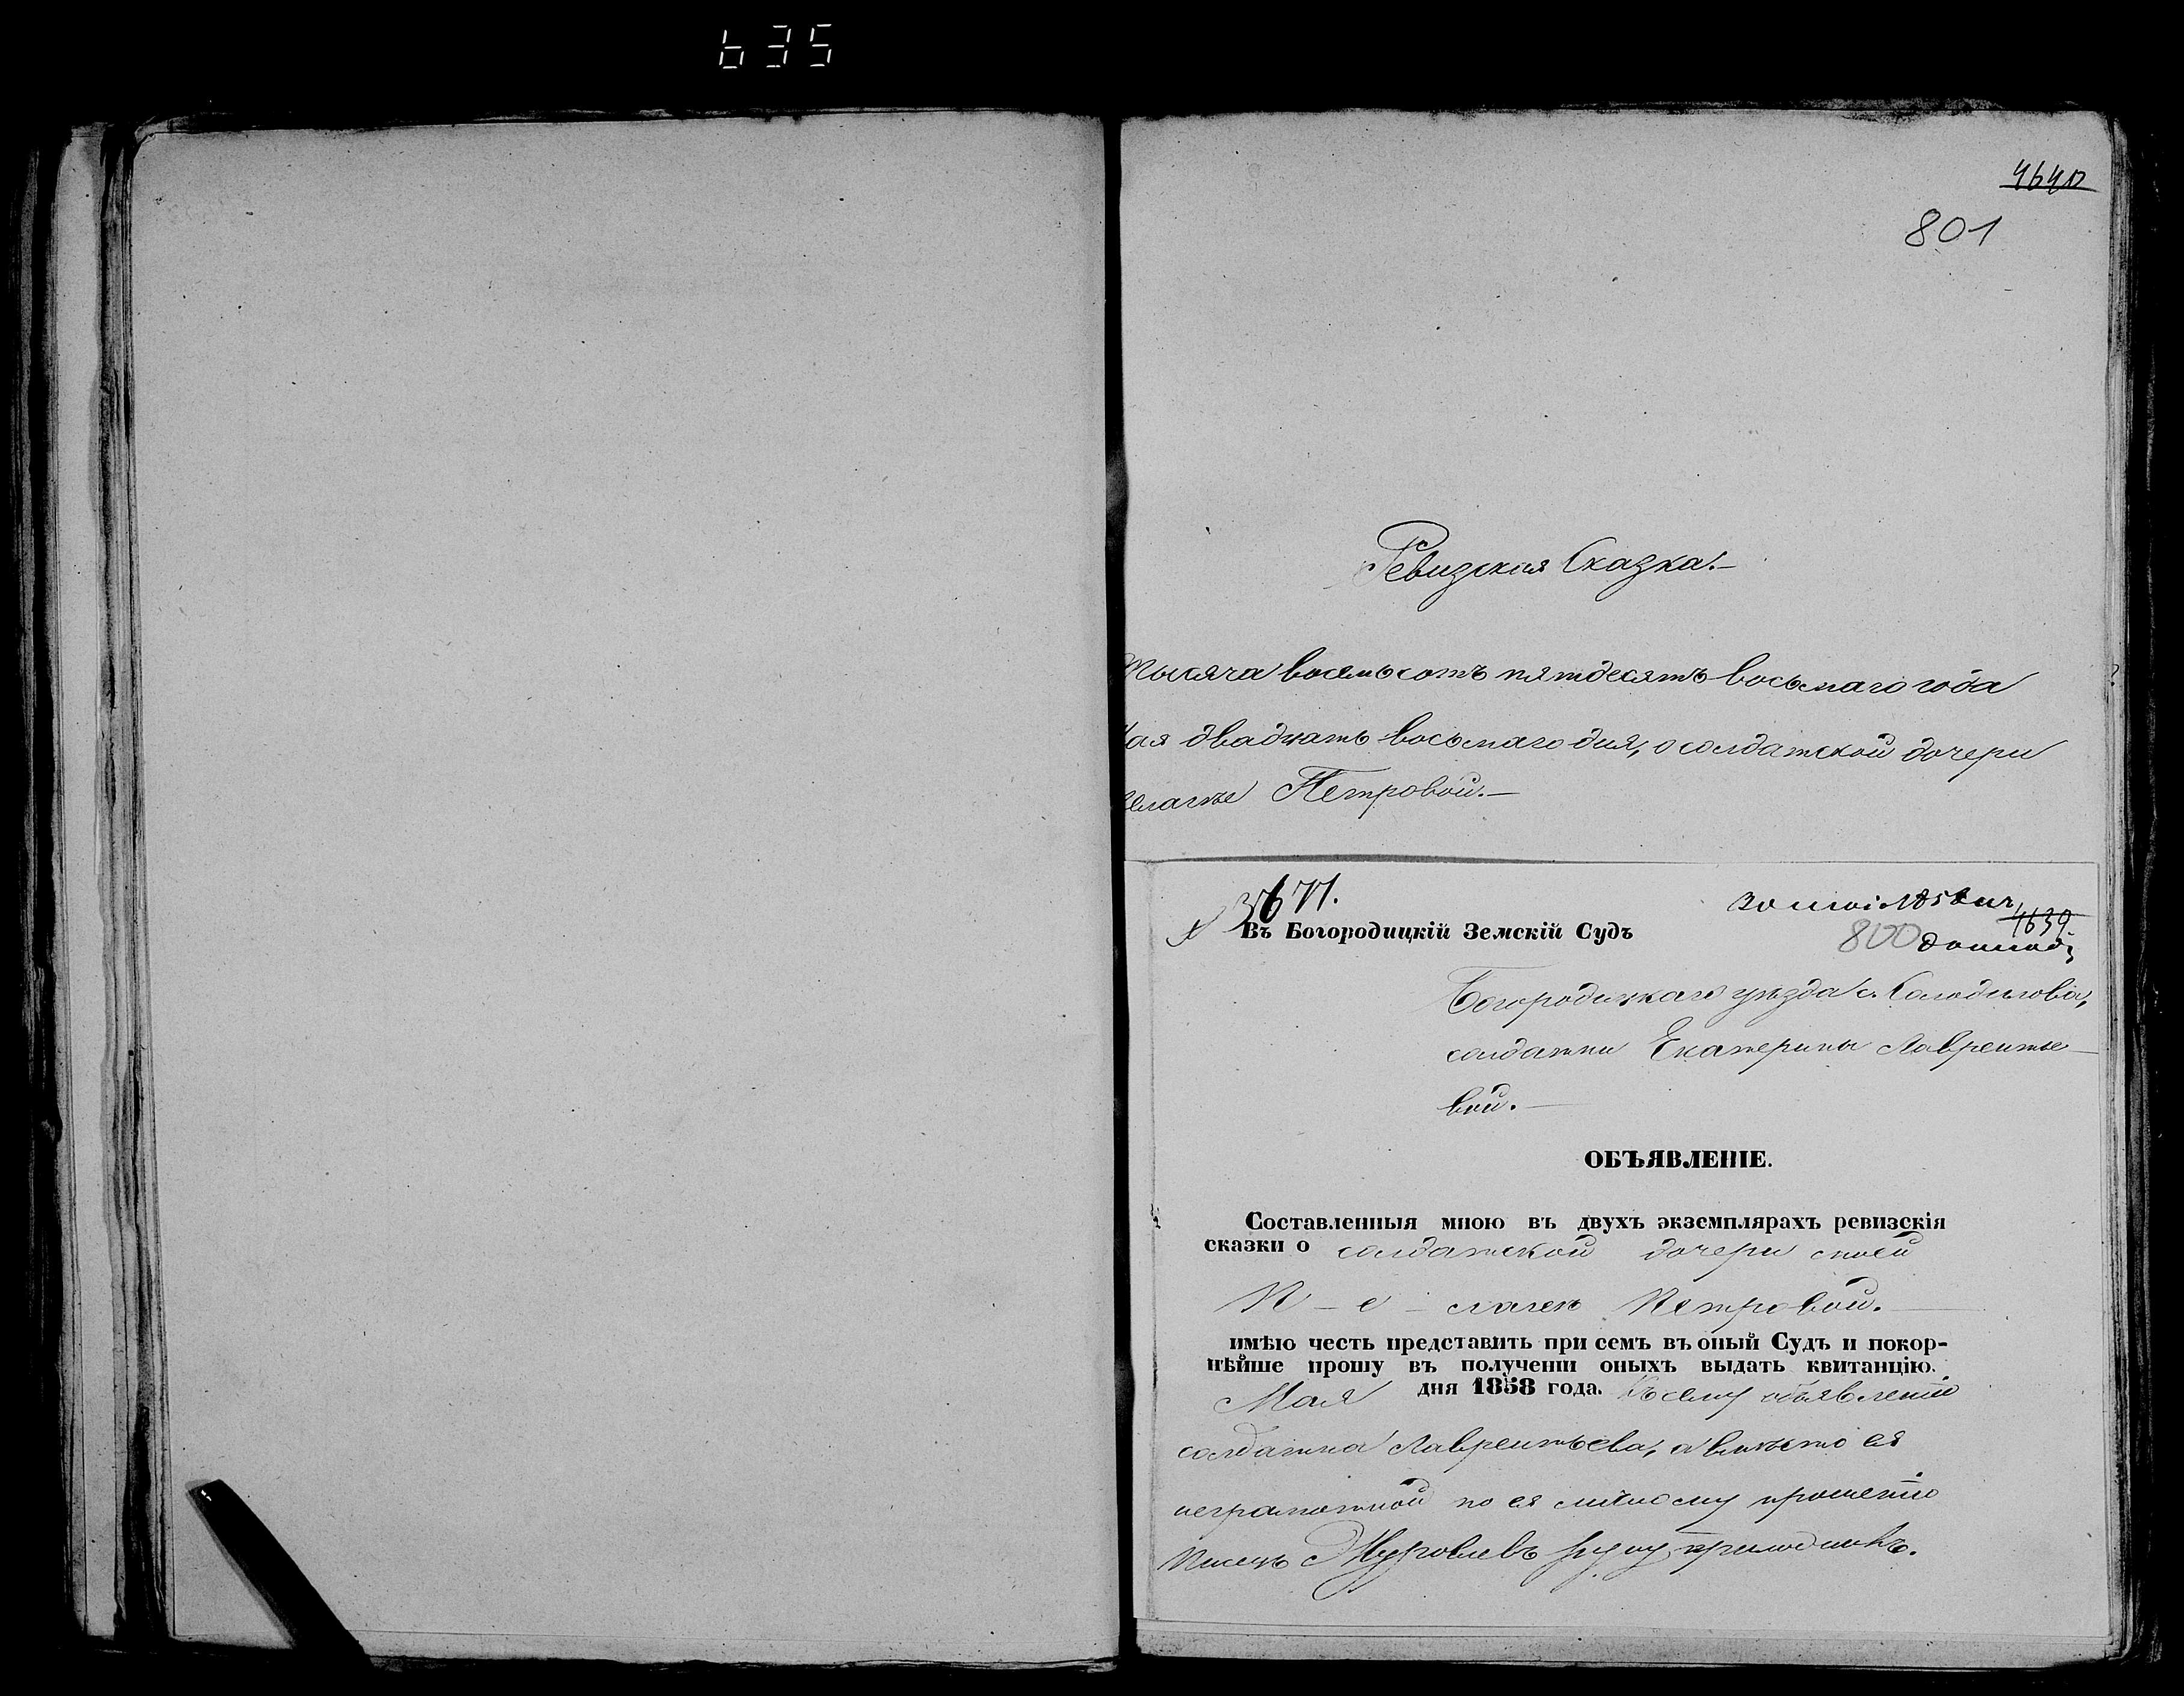 635
4640
801
Ревизская Сказка.
Тысяча восемьсотъ пятдесятъ восьмаго года
Мая двадцать восьмаго дня, о солдатской дочери
Пелагеѣ Петровой.
3671.
1858
4639
Въ Богородицкій Земскій Судъ
800
Богородицкаго уѣзда с.
солдатки Екатерины Лаврентье-
вой.
ОБЪЯВЛЕНІЕ.
Составленныя мною въ двухъ экземплярахъ ревизскія
сказки о солдатской дочери моей
П-е-лагеѣ Петровой.
имѣю честь представить при семъ въ оный Судъ и покор-
нѣйше прошу въ полученіи оныхъ выдать квитанцію.
Мая дня 1858 года. Къ сему объявленію
солдатка Лаврентьева, а вмѣсто ея
неграмотной по ея личному прошенію
Писецъ Журовлевъ руку приложилъ.